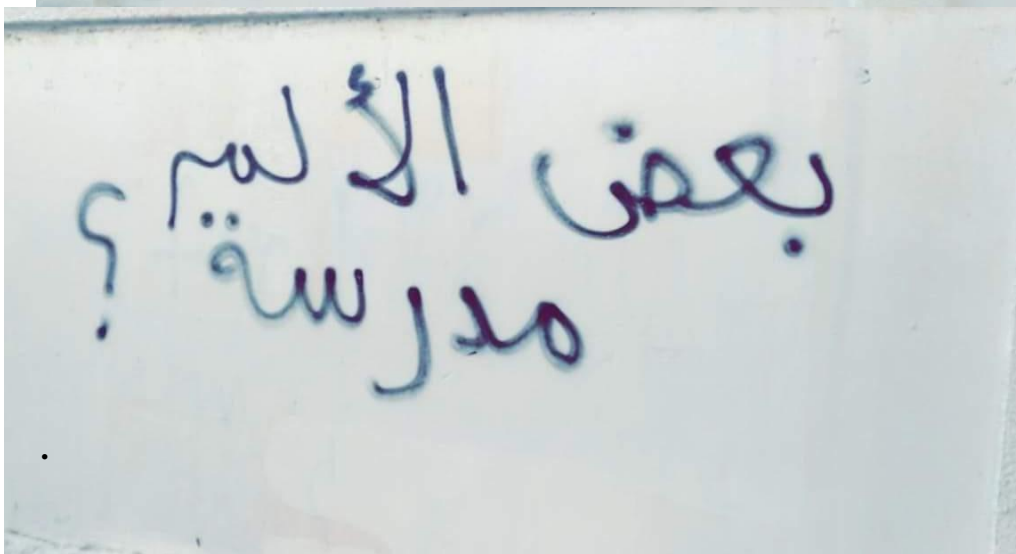 بعض الألم
مدرسة ؟